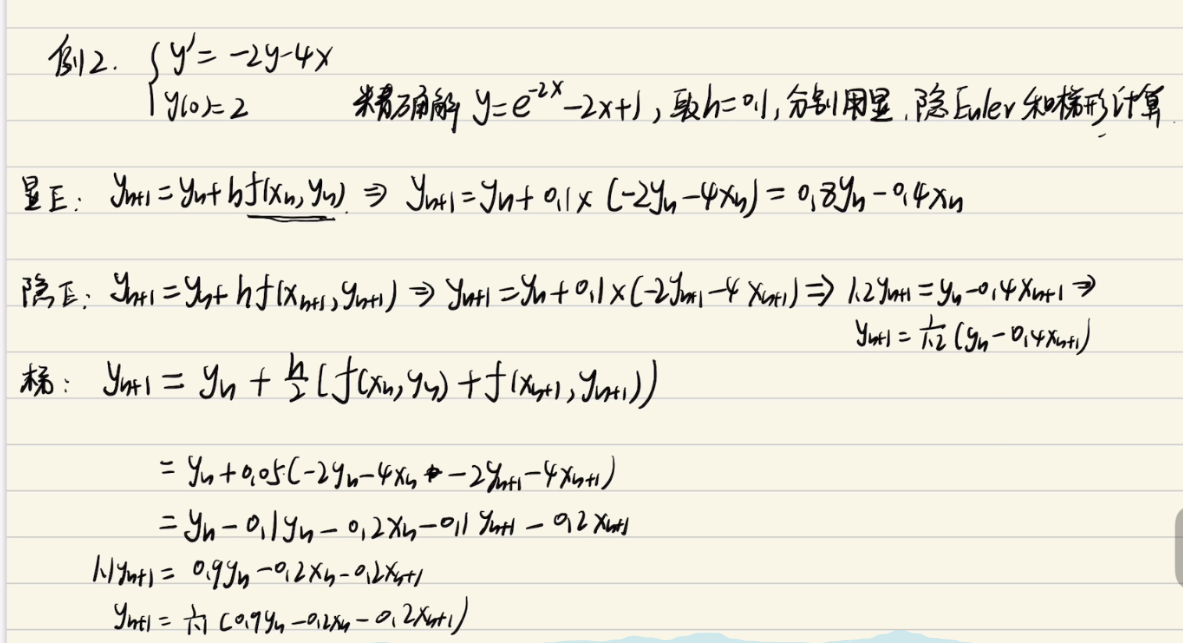 例2. { y' = -2y-4x
y(0)=2 精确解 y=e^{-2x}-2x+1, 取h=0.1, 分别用显.隐Euler和梯形计算
显E: y_{n+1}=y_n+hf(x_n,y_n) ⇒ y_{n+1}=y_n+0.1×(-2y_n-4x_n)=0.8y_n-0.4x_n
隐E: y_{n+1}=y_n+hf(x_{n+1},y_{n+1}) ⇒ y_{n+1}=y_n+0.1×(-2y_{n+1}-4x_{n+1}) ⇒ 1.2y_{n+1}=y_n-0.4x_{n+1} ⇒
y_{n+1}=\frac{1}{1.2}(y_n-0.4x_{n+1})
梯: y_{n+1} = y_n + \frac{h}{2}(f(x_n,y_n)+f(x_{n+1},y_{n+1}))
= y_n+0.05(-2y_n-4x_n-2y_{n+1}-4x_{n+1})
= y_n-0.1y_n-0.2x_n-0.1y_{n+1}-0.2x_{n+1}
1.1y_{n+1} = 0.9y_n-0.2x_n-0.2x_{n+1}
y_{n+1} = \frac{1}{1.1}(0.9y_n-0.2x_n-0.2x_{n+1})